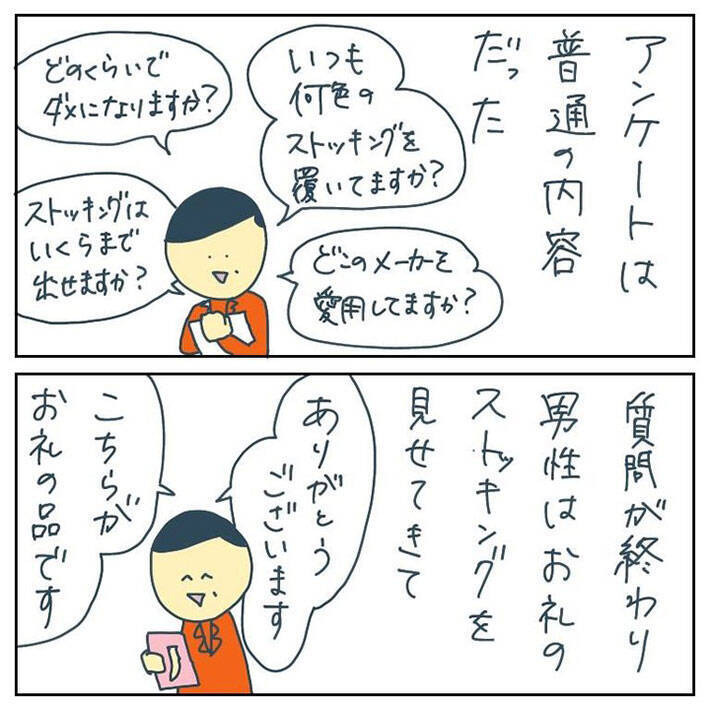 アンケートは
普通の内容
だった
いつも
何色の
ストッキングを
履いてますか?
どのくらいで
ダメになりますか?
どこのメーカーを
愛用してますか?
ストッキングは
いくらまで
出せますか?
質問が終わり
男性はお礼の
ストッキングを
見せてきて
ありがとう
ございます
こちらが
お礼の品です